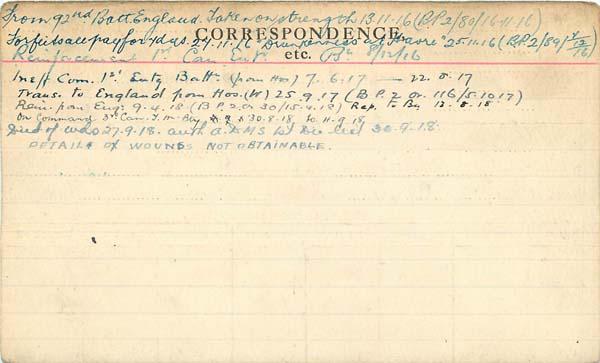 From 92nd Batt England. Taken on strength 13.11.16 (B.P. 2/80/16-11-16)
CORRESPONDENCE
Forfeits all pay for 7 days. 24.11.16 "Drunkenness at Havre" 25.11.16 (B.P. 2/89/ 7/12/16)
etc.
Reinforcement 1st Can Ent. Bn 8/12/16
Ineff Com. 1st Entg Batt. (from Hos) 7.6.17 — 22. 17
Trans. to England from Hos. (W) 25.9.17 (B.P. 2 or 116/5.10.17)
Rein. from Eng. 9.4.18 (B.P. 2 or 30/15.4.18) Rep. to By 13. 8.18
On Command 3rd Can. T.M. Bty 30.8.18 to 11.9.18
Died of Wds 27.9.18. auth a. DMS 30.9.18.
DETAILS OF WOUNDS NOT OBTAINABLE.